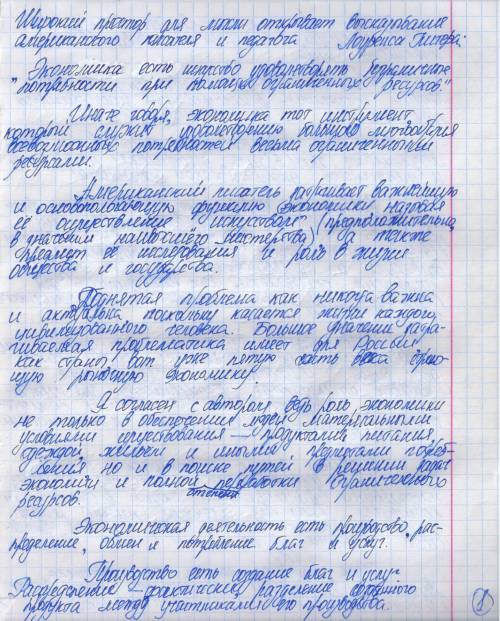 Широкий простор для мысли открывает высказывание
американского писателя и педагога Лоуренса Питера:
"Экономика есть искусство удовлетворять безграничные
потребности при помощи ограниченных ресурсов."
Иначе говоря, экономика тот инструмент,
который служит удовлетворению большого многообразия
всевозможных потребностей весьма ограниченными
ресурсами.
Американский писатель затрагивает важнейшую
и основополагающую функцию экономики называя
её осуществление "искусством" (предположительно,
в значении наивысшего мастерства), а также
предмет её исследования и роль в жизни
общества и государства.
Поднятая проблема как никогда важна
и актуальна, поскольку касается жизни каждого
цивилизованного человека. Большое значение
проблематика имеет для России
как страны вот уже пятую часть века
рыночную экономику.
Я согласен с автором ведь роль экономики
не только в обеспечении людей материальными
условиями существования — продуктами питания,
одеждой, жильем и иными предметами потреб-
ления но и в поиске путей в решении задач
экономии и полной степени переработки ограниченного
ресурсов.
Экономическая деятельность есть производство, рас-
пределение, обмен и потребление благ и услуг.
Производство есть создание благ и услуг.
Распределение – фактическое разделение созданного
продукта между участниками его производства.
1